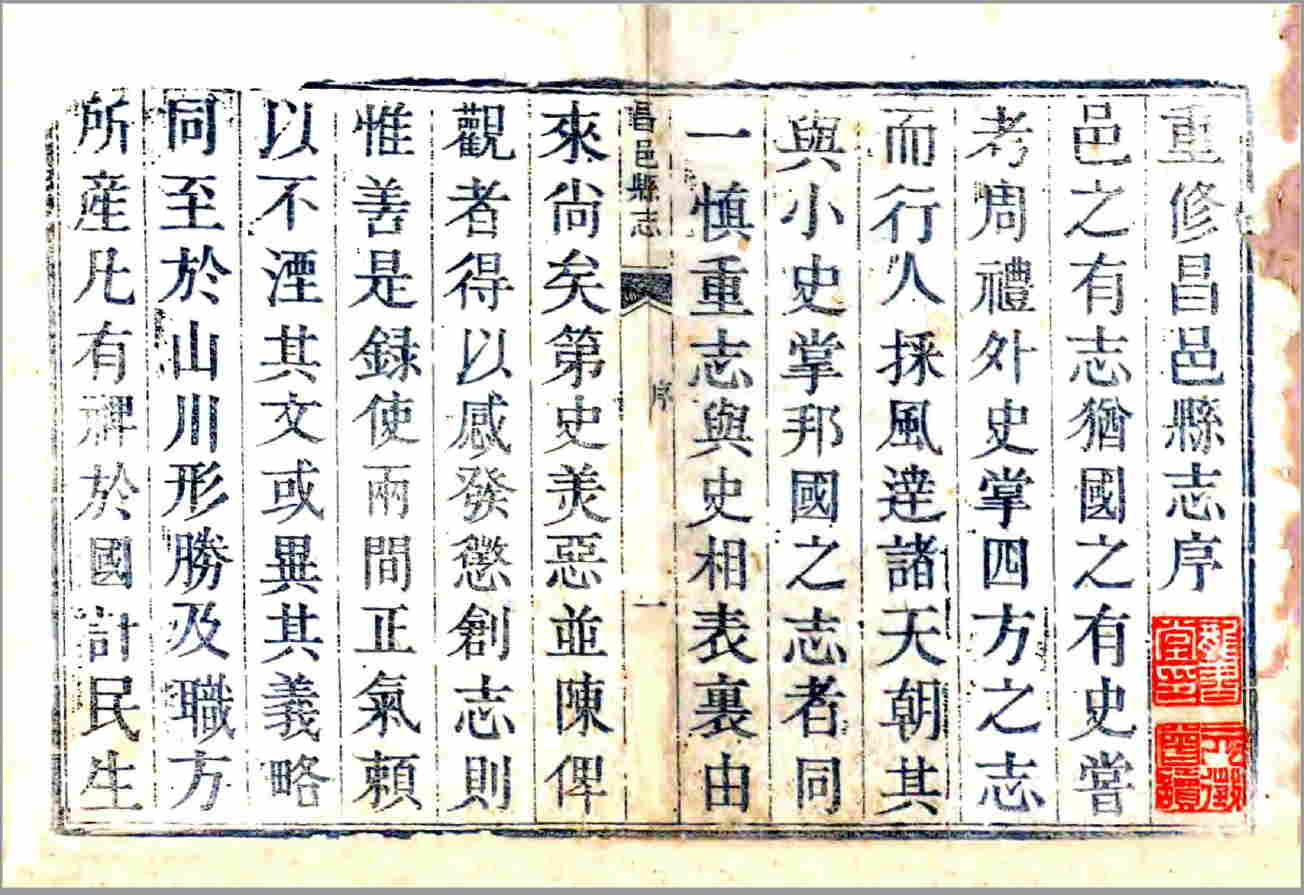 重修昌邑縣志序
邑之有志猶國之有史嘗
考周禮外史掌四方之志
而行人採風達諸天朝其
與小史掌邦國之志者同
一慎重志與史相表裏由
昌邑縣志
序
一
來尙矣第史美惡並陳俾
觀者得以感發懲創志則
惟善是録使兩間正氣頼
以不湮其文或異其義略
同至於山川形勝及職方
所産凡有裨於國計民生